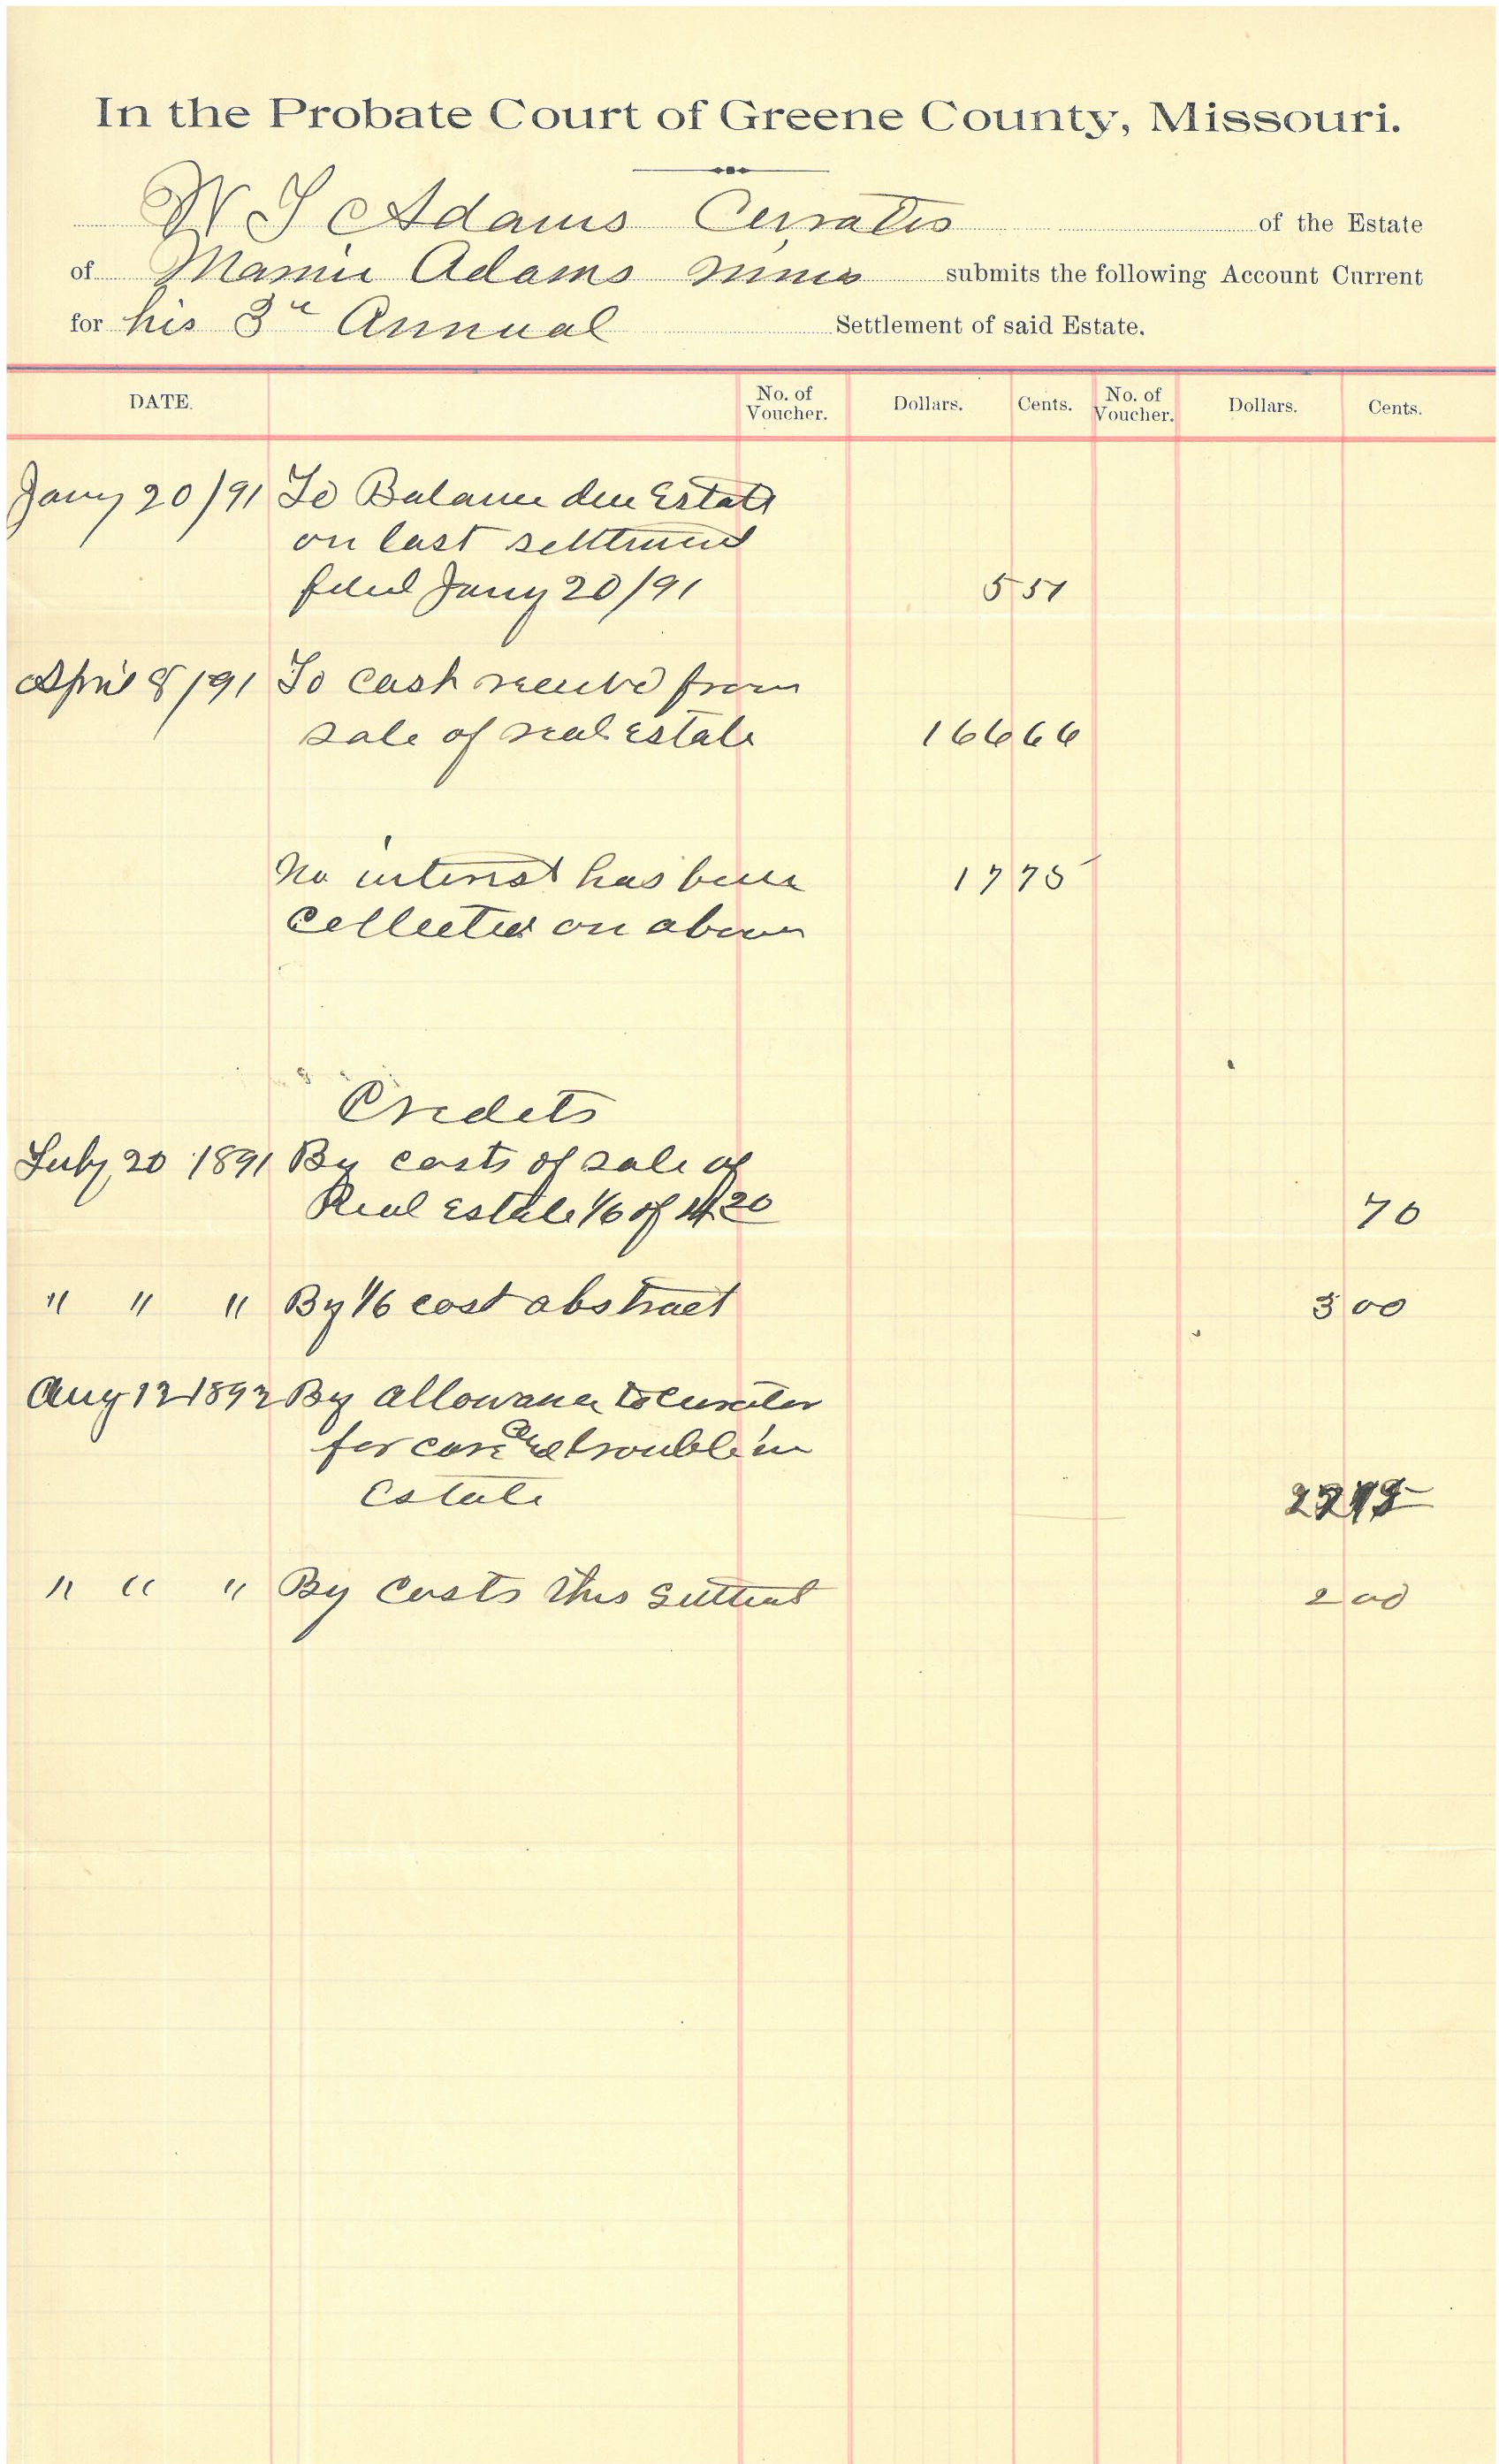 In the Probate Court of Greene County, Missouri.
W S Adams Curator of the Estate
of Mamie Adams minor submits the following Account Current
for his 3rd Annual Settlement of said Estate.
DATE. No. of Voucher. Dollars. Cents. No. of Voucher. Dollars. Cents.
Jany 20/91 To Balance due Estate
on last settlement
filed Jany 20/91 5 51
April 8/91 To cash received from
sale of real estate 166 66
No interest has been 17 75
collected on above
Credits
July 20 1891 By costs of sale of
Real estate 1/6 of 4.20 70
" " " By 1/6 cost abstract 3 00
Aug 12 1892 By allowance to curator
for care and trouble in
Estate
" " " By costs this settlemt 2 00